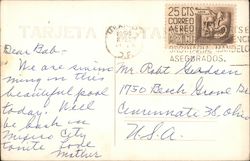 TARJETA
25 CTS
CORREO
AEREO
ASEGURADOS.
Dear Bob-
We are swim
ming in this
beautiful pool
today. Will
be back in
Mexico City
tonite. Love
Mother
Mr. Robt
1750 Beech Grove Dr.
Cincinnati 36, Ohio
U.S.A.